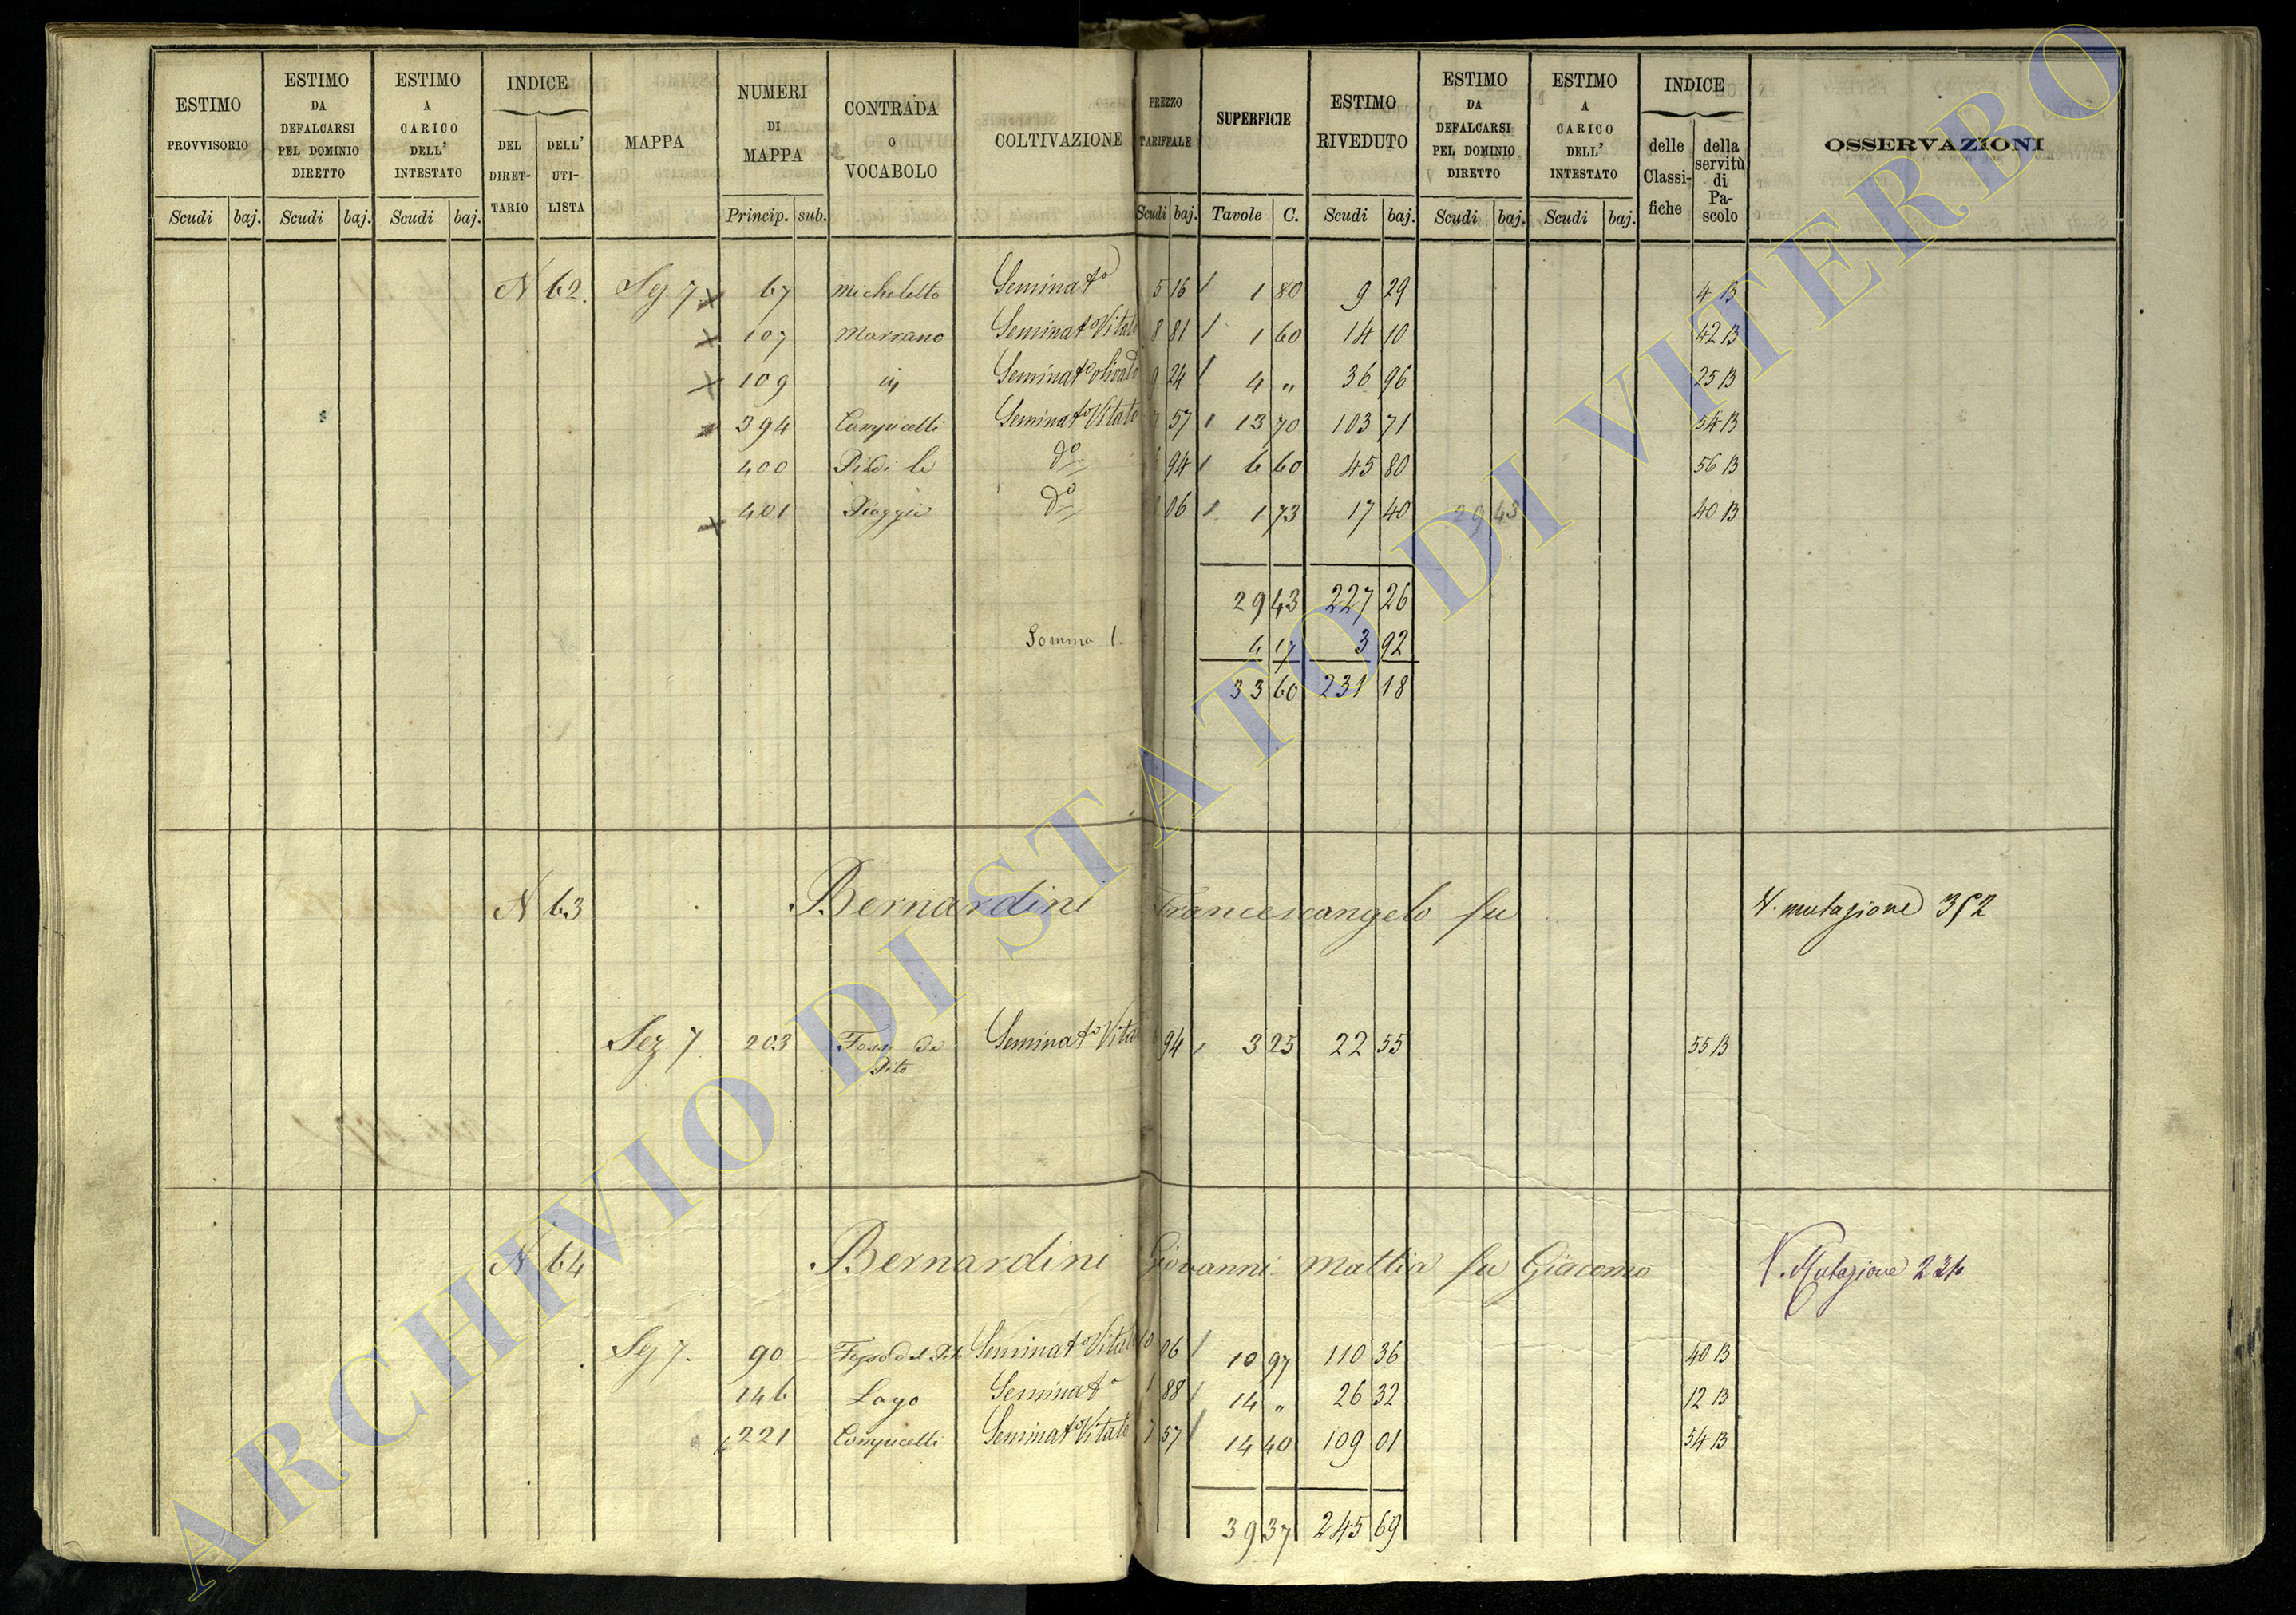 ESTIMO PROVVISORIO
ESTIMO DA DEFALCARSI PEL DOMINIO DIRETTO
ESTIMO A CARICO DELL' INTESTATO
INDICE
DEL DIRET-TARIO
DELL' UTI-LISTA
MAPPA
NUMERI DI MAPPA
CONTRADA o VOCABOLO
COLTIVAZIONE
PREZZO TARIFFALE
SUPERFICIE
ESTIMO RIVEDUTO
ESTIMO DA DEFALCARSI PEL DOMINIO DIRETTO
ESTIMO A CARICO DELL' INTESTATO
INDICE
delle Classi-fiche
della servitù di Pa-scolo
OSSERVAZIONI
Scudi baj. Scudi baj. Scudi baj. Princip. sub. Scudi baj. Tavole C. Scudi baj. Scudi baj. Scudi baj.
N 62. Sez 7 67 Micheletto Seminato 5 16 1 80 9 29 4 B
107 Marrano Seminato Vitato 8 81 1 60 14 10 42 B
109 id Seminato olivato 9 24 4 „ 36 96 25 B
394 Campicelli Seminato Vitato 7 57 13 70 103 71 54 B
400 do 94 6 60 45 80 56 B
401 Piaggie do 06 1 73 17 40 29 43 40 B
29 43 227 26
Somma 1. 4 17 3 92
33 60 231 18
N 63 Bernardini Francescangelo fu V. mutazione 352
Sez 7 203 Fosso de Pito Seminato Vita 94 3 25 22 55 55 B
N 64 Bernardini Giovanni Mattia fu Giacomo V. Mutazione
Sez 7. 90 Fosso del Seminato Vitato 10 06 10 97 110 36 40 B
146 Lago Seminato 1 88 14 „ 26 32 12 B
221 Campicelli Seminato Vitato 7 57 14 40 109 01 54 B
39 37 245 69
ARCHIVIO DI STATO DI VITERBO